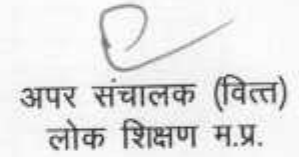 अपर संचालक (वित्त)
लोक शिक्षण म.प्र.